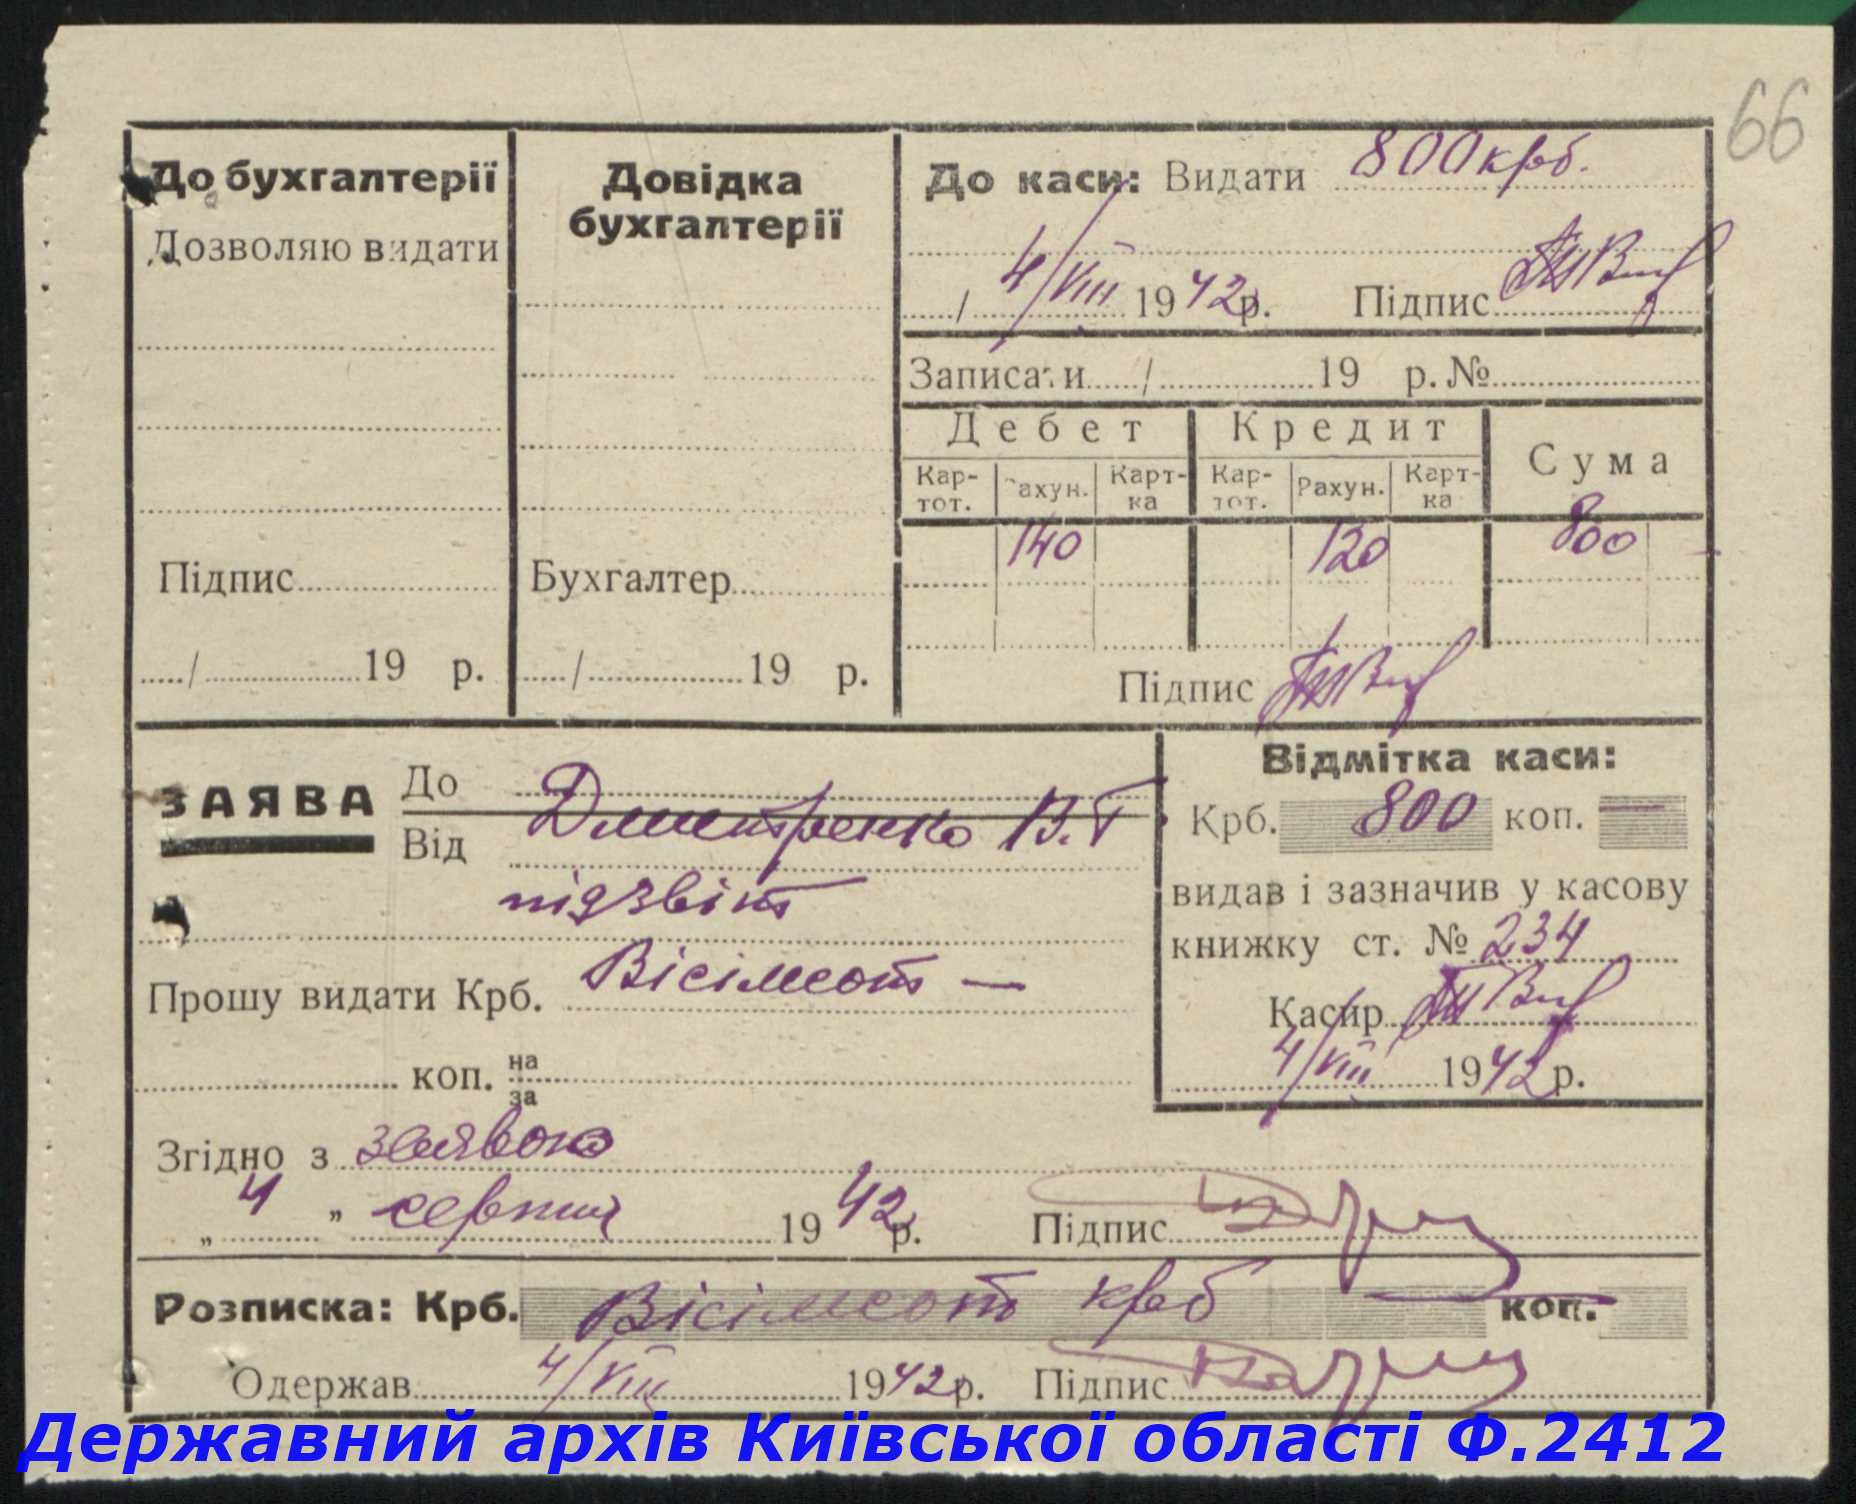 66
До бухгалтерії
Дозволяю видати
Підпис
/ 19 р.
Довідка
бухгалтерії
Бухгалтер
/ 19 р.
До каси: Видати 800 крб.
4/VIII 1942 р. Підпис
Записати / 19 р. №
Дебет Кредит Сума
Кар-тот. Рахун. Карт-ка Кар-тот. Рахун. Карт-ка
140 120 800
Підпис
ЗАЯВА До
Від Дмитренко В.Г
підзвіт
Прошу видати Крб. Вісімсот —
коп. на за
Відмітка каси:
Крб. 800 коп. —
видав і зазначив у касову
книжку ст. № 234
Касир
4/VIII 1942 р.
Згідно з заявою
„ 4 " серпня 1942 р. Підпис
Розписка: Крб. Вісімсот крб коп.
Одержав 4/VIII 1942 р. Підпис
Державний архів Київської області Ф.2412